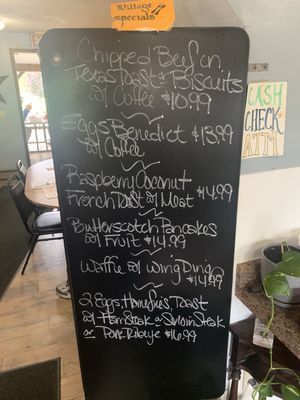 Village
specials
Chipped Beef on
Texas Toast or Biscuits
w/ Coffee $10.99
Eggs Benedict $13.99
w/ Coffee
Raspberry Coconut
French Toast w/ Meat $14.99
Butterscotch Pancakes
w/ Fruit $14.99
Waffle w/ Wing Ding
$14.99
2 Eggs, Homefries, Toast
w/ Ham Steak or Sirloin Steak
or Pork Ribeye $16.99
CASH
CHECK
ATM